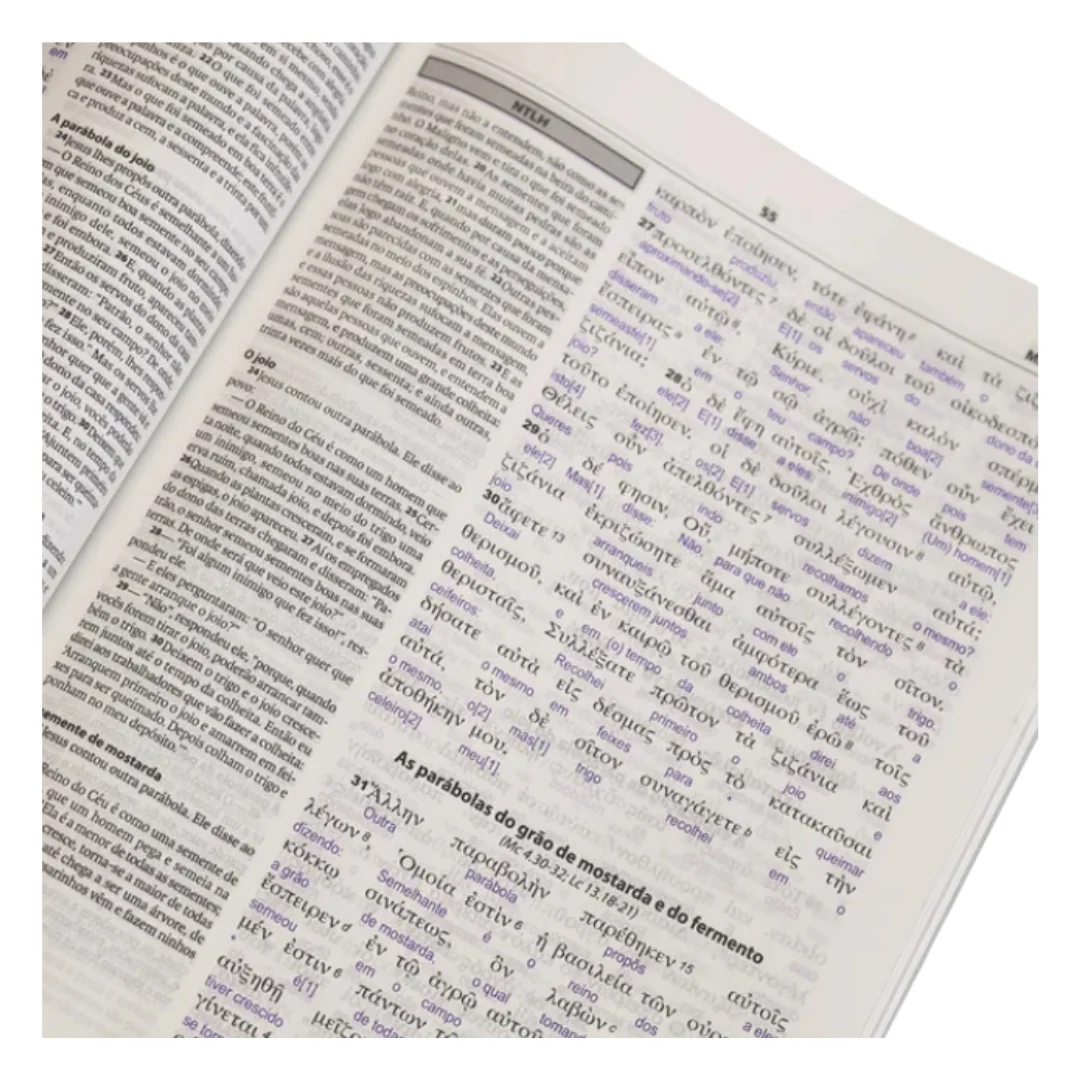 riquezas sufocam a palavra, e ela fica infrutífera
ra. 23 Mas o que foi semeado em boa terra é o
que ouve a palavra e a compreende; este frutifi-
ca e produz a cem, a sessenta e a trinta por um.
A parábola do joio
24 Jesus lhes propôs outra parábola, dizendo:
— O Reino dos Céus é semelhante a um ho-
que semeou boa semente no seu campo;
enquanto todos estavam dormindo,
inimigo dele, semeou o joio no meio
e foi embora. 26 E, quando as plantas
e produziram fruto, apareceu
27 Então os servos do dono da casa
disseram: "Patrão, o senhor não
mente no seu campo? De
28 Ele, porém, lhes respondeu:
fez isso." Mas os servos
NTLH
Reino, mas não a entendem, são como as se-
mentes que foram semeadas na beira do cami-
nho. O Maligno vem e tira o que foi semeado
no coração delas. 20 As sementes que foram
semeadas onde havia muitas pedras são as
pessoas que ouvem a mensagem e a aceitam
logo com alegria, 21 mas duram pouco porque
não têm raiz. E, quando por causa da mensa-
gem chegam os sofrimentos e as perseguições,
elas logo abandonam a sua fé. 22 Outras pes-
soas são parecidas com as sementes que foram
semeadas no meio dos espinhos. Elas ouvem a
mensagem, mas as preocupações deste mundo
e a ilusão das riquezas sufocam a mensagem,
e essas pessoas não produzem frutos. 23 E as
sementes que foram semeadas em terra boa
são aquelas pessoas que ouvem, e entendem a
mensagem, e produzem uma grande colheita:
umas, cem; outras, sessenta; e ainda outras,
trinta vezes mais do que foi semeado.
O joio
24 Jesus contou outra parábola. Ele disse ao
povo:
— O Reino do Céu é como um homem que
semeou sementes boas nas suas terras. 25 Cer-
ta noite, quando todos estavam dormindo, veio
um inimigo, semeou no meio do trigo uma
erva ruim, chamada joio, e depois foi embora.
26 Quando as plantas cresceram, e se formaram
as espigas, o joio apareceu. 27 Aí os empregados
do dono das terras chegaram e disseram: "Pa-
trão, o senhor semeou sementes boas nas suas
terras. De onde será que veio este joio?"
28 — "Foi algum inimigo que fez isso!", res-
pondeu ele.
— E eles perguntaram: "O senhor quer que
a gente arranque o joio?"
29 — "Não", respondeu ele, "porque, quando
vocês forem tirar o joio, poderão arrancar tam-
bém o trigo. 30 Deixem o trigo e o joio cresce-
rem juntos até o tempo da colheita. Então eu
direi aos trabalhadores que vão fazer a colheita:
'Arranquem primeiro o joio e amarrem em fei-
xes para ser queimado. Depois colham o trigo e
ponham no meu depósito.'"
semente de mostarda
Jesus contou outra parábola. Ele disse ao
Reino do Céu é como uma semente de
que um homem pega e semeia na
Ela é a menor de todas as sementes;
cresce, torna-se a maior de todas
até chega a ser uma árvore, de
passarinhos vêm e fazem ninhos
55
καρπὸν ἐποίησεν, τότε ἐφάνη καὶ τὰ
fruto produziu, então apareceu também o
27 προσελθόντες 7 δὲ οἱ δοῦλοι τοῦ οἰκοδεσπό
aproximando-se[2] E[1] os servos do dono da
εἶπον αὐτῷ 8, Κύριε, οὐχὶ καλὸν σπέρμ
disseram a ele: Senhor, não boa[2] semente
ἔσπειρας ἐν τῷ σῷ ἀγρῷ; πόθεν οὖν ἔχει
semeaste[1] em o teu campo? De onde pois tem
ζιζάνια; 28 ὁ δὲ ἔφη αὐτοῖς, Ἐχθρὸς ἄνθρωπος
joio? ele[2] E[1] disse a eles: inimigo[2] (Um) homem[1]
τοῦτο ἐποίησεν. οἱ δὲ δοῦλοι λέγουσιν 8 αὐτῷ,
isto[4] fez[3]. os[2] E[1] servos dizem a ele:
Θέλεις οὖν ἀπελθόντες 7 συλλέξωμεν αὐτά;
Queres pois indo recolhamos o mesmo?
29 ὁ δέ φησιν, Οὔ, μήποτε συλλέγοντες 8 τὰ
ele[2] Mas[1] disse: Não, para que não recolhendo o
ζιζάνια ἐκριζώσητε ἅμα αὐτοῖς τὸν σῖτον.
joio arranqueis junto com ele o trigo.
30 ἄφετε 13 συναυξάνεσθαι ἀμφότερα ἕως τοῦ
Deixai crescerem juntos ambos até a
θερισμοῦ, καὶ ἐν καιρῷ τοῦ θερισμοῦ ἐρῶ 8 τοῖς
colheita, e em (o) tempo da colheita direi aos
θερισταῖς, Συλλέξατε πρῶτον τὰ ζιζάνια καὶ
ceifeiros: Recolhei primeiro o joio e
δήσατε αὐτὰ εἰς δέσμας πρὸς τὸ κατακαῦσαι
atai o mesmo em feixes para queimar
αὐτά, τὸν δὲ σῖτον συναγάγετε b εἰς τὴν
o mesmo, o[2] mas[1] trigo recolhei em o
ἀποθήκην μου.
celeiro[2] meu[1].
As parábolas do grão de mostarda e do fermento
(Mc 4.30-32; Lc 13.18-21)
31 Ἄλλην παραβολὴν παρέθηκεν 15 αὐτοῖς
Outra parábola propôs a eles
λέγων 8, Ὁμοία ἐστὶν 6 ἡ βασιλεία τῶν οὐρ
dizendo: Semelhante é o reino dos
κόκκῳ σινάπεως, ὃν λαβὼν c
a grão de mostarda, o qual tomando
ἔσπειρεν d ἐν τῷ ἀγρῷ αὐτοῦ
semeou em o campo
μέν ἐστιν 6 πάντων τῶ
é[1] de todas
αὐξηθῇ μεῖζο
tiver crescido
γίνεται
se torn